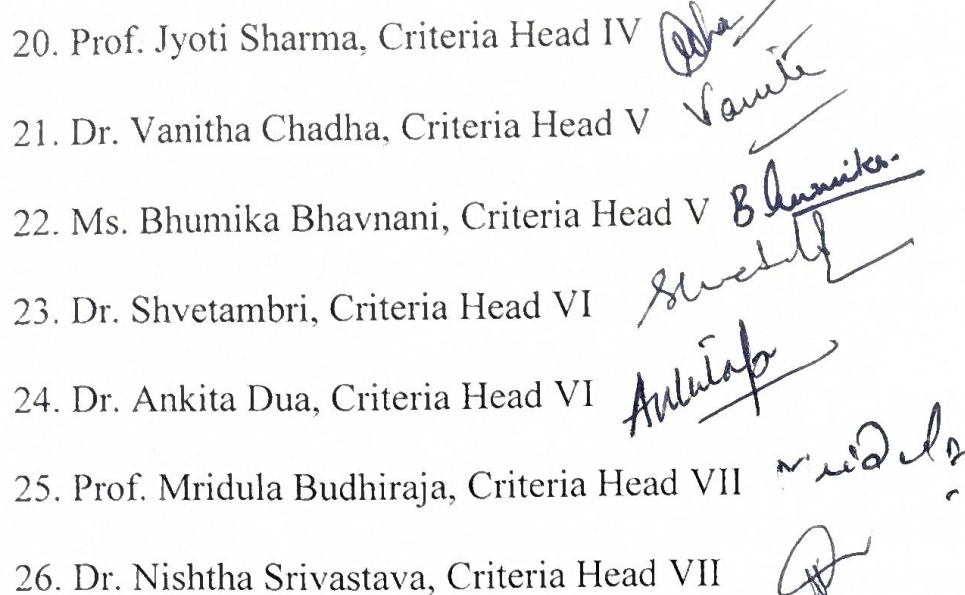 20. Prof. Jyoti Sharma, Criteria Head IV
21. Dr. Vanitha Chadha, Criteria Head V
22. Ms. Bhumika Bhavnani, Criteria Head V Bhumika.
23. Dr. Shvetambri, Criteria Head VI
24. Dr. Ankita Dua, Criteria Head VI
25. Prof. Mridula Budhiraja, Criteria Head VII
26. Dr. Nishtha Srivastava, Criteria Head VII